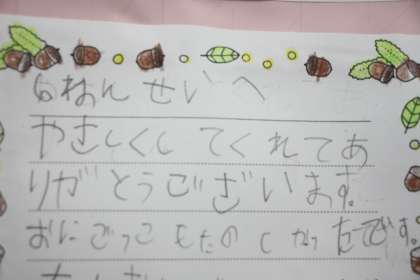 6ねんせいへ
やさしくしてくれてあ
りがとうございます。
おにごっこもたのしかったです。